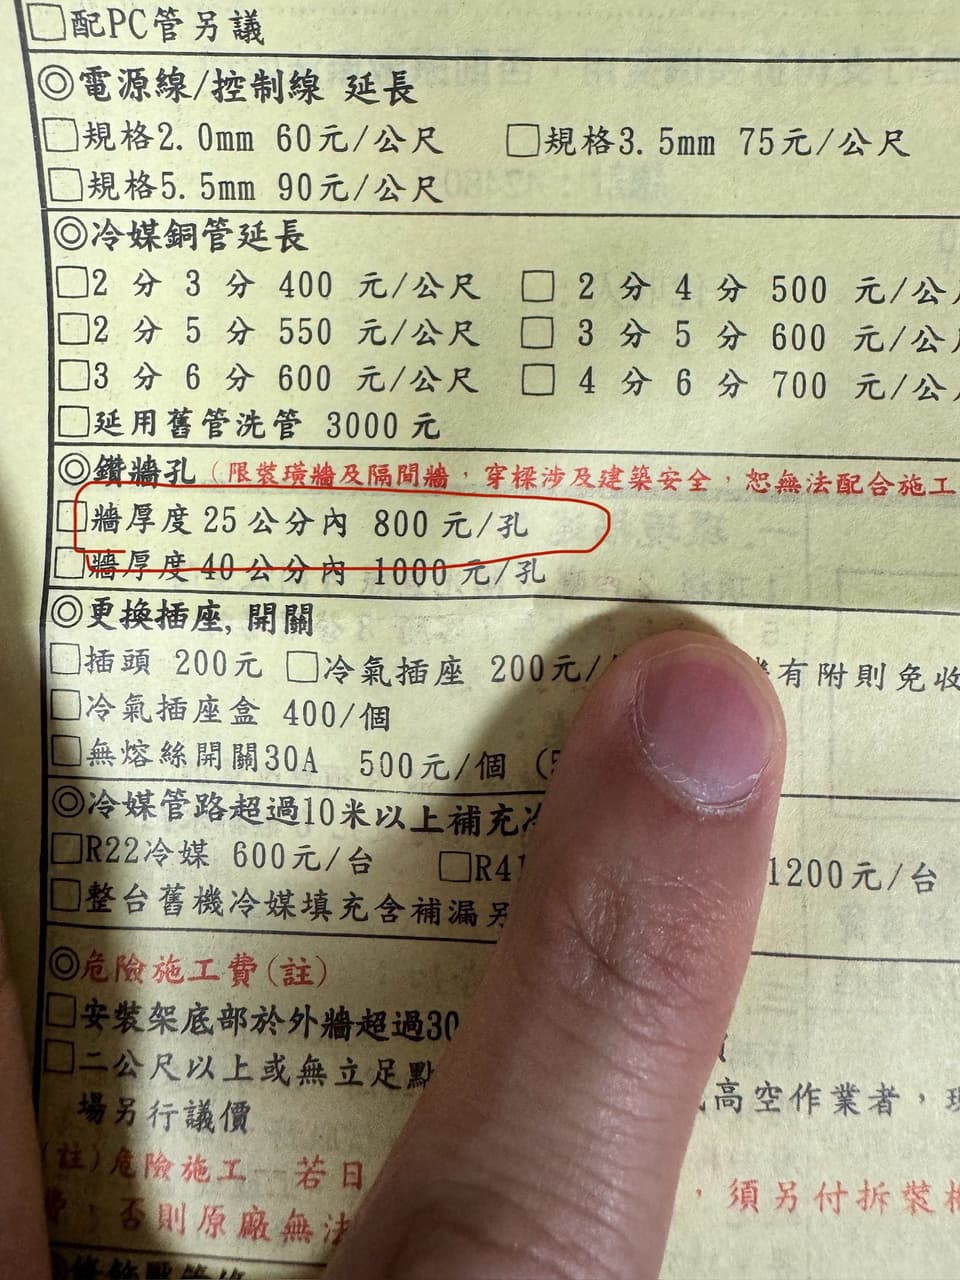 □配PC管另議
◎電源線/控制線 延長
□規格2.0mm 60元/公尺 □規格3.5mm 75元/公尺
□規格5.5mm 90元/公尺
◎冷媒銅管延長
□2 分 3 分 400 元/公尺 □ 2 分 4 分 500 元/公
□2 分 5 分 550 元/公尺 □ 3 分 5 分 600 元/公
□3 分 6 分 600 元/公尺 □ 4 分 6 分 700 元/公
□延用舊管洗管 3000 元
◎鑽牆孔(限裝璜牆及隔間牆,穿樑涉及建築安全,恕無法配合施工
□牆厚度 25 公分內 800 元/孔
□牆厚度 40 公分內 1000 元/孔
◎更換插座, 開關
□插頭 200元 □冷氣插座 200元/ 有附則免收
□冷氣插座盒 400/個
□無熔絲開關30A 500元/個 (
◎冷媒管路超過10米以上補充
□R22冷媒 600元/台 □R41 1200元/台
□整台舊機冷媒填充含補漏另
◎危險施工費(註)
□安裝架底部於外牆超過30
□二公尺以上或無立足點 高空作業者,現
場另行議價
(註)危險施工--若日 ,須另付拆裝
費;否則原廠無法